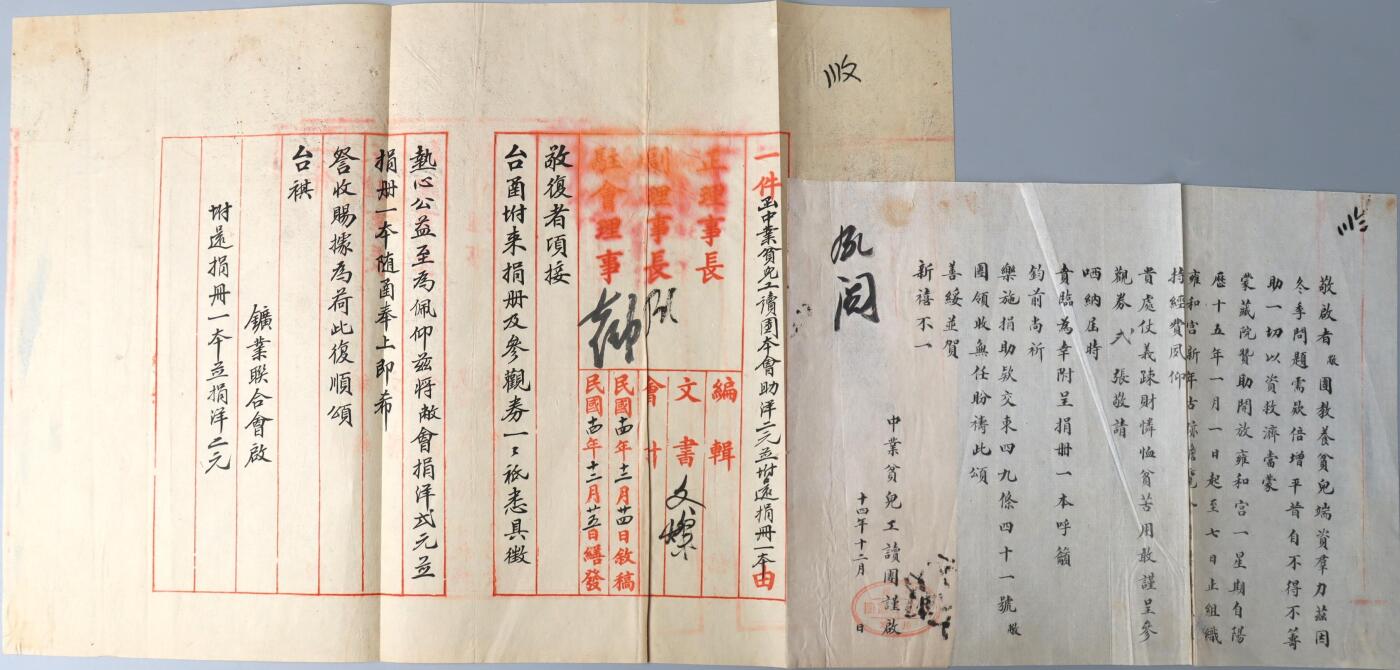 敬啟者敝團教養貧兒端資羣力茲因
冬季問題需欵倍增平昔自不得不籌
助一切以資救濟當蒙
蒙藏院贊助開放雍和宮一星期自陽
歷十五年一月一日起至七日止組織
雍和宮新年古
持經費夙仰
貴處仗義疎財憐恤貧苦用敢謹呈參
觀券弍張敬請
哂納屆時
賁臨為幸附呈捐册一本呼籲
鈞前尚祈
樂施捐助欵交東四九條四十一號敝
團領收無任盼禱此頌
善綏並賀
新禧不一
中業貧兒工讀團謹啟
十四年十二月 日
一件函中業貧兒工讀團本會助洋二元並坿還捐冊一本由
正理事長
副理事長
駐會理事
編輯
文書
會計
民國十四年十二月廿四日敘稿
民國十四年十二月廿五日繕發
敬復者項接
台函坿来捐册及參觀券一〻祗悉具徵
熱心公益至為佩仰茲將敝會捐洋弍元並
捐册一本随函奉上即希
詧收賜據為荷此復順頌
台祺
鑛業联合會啟
坿還捐冊一本並捐洋二元